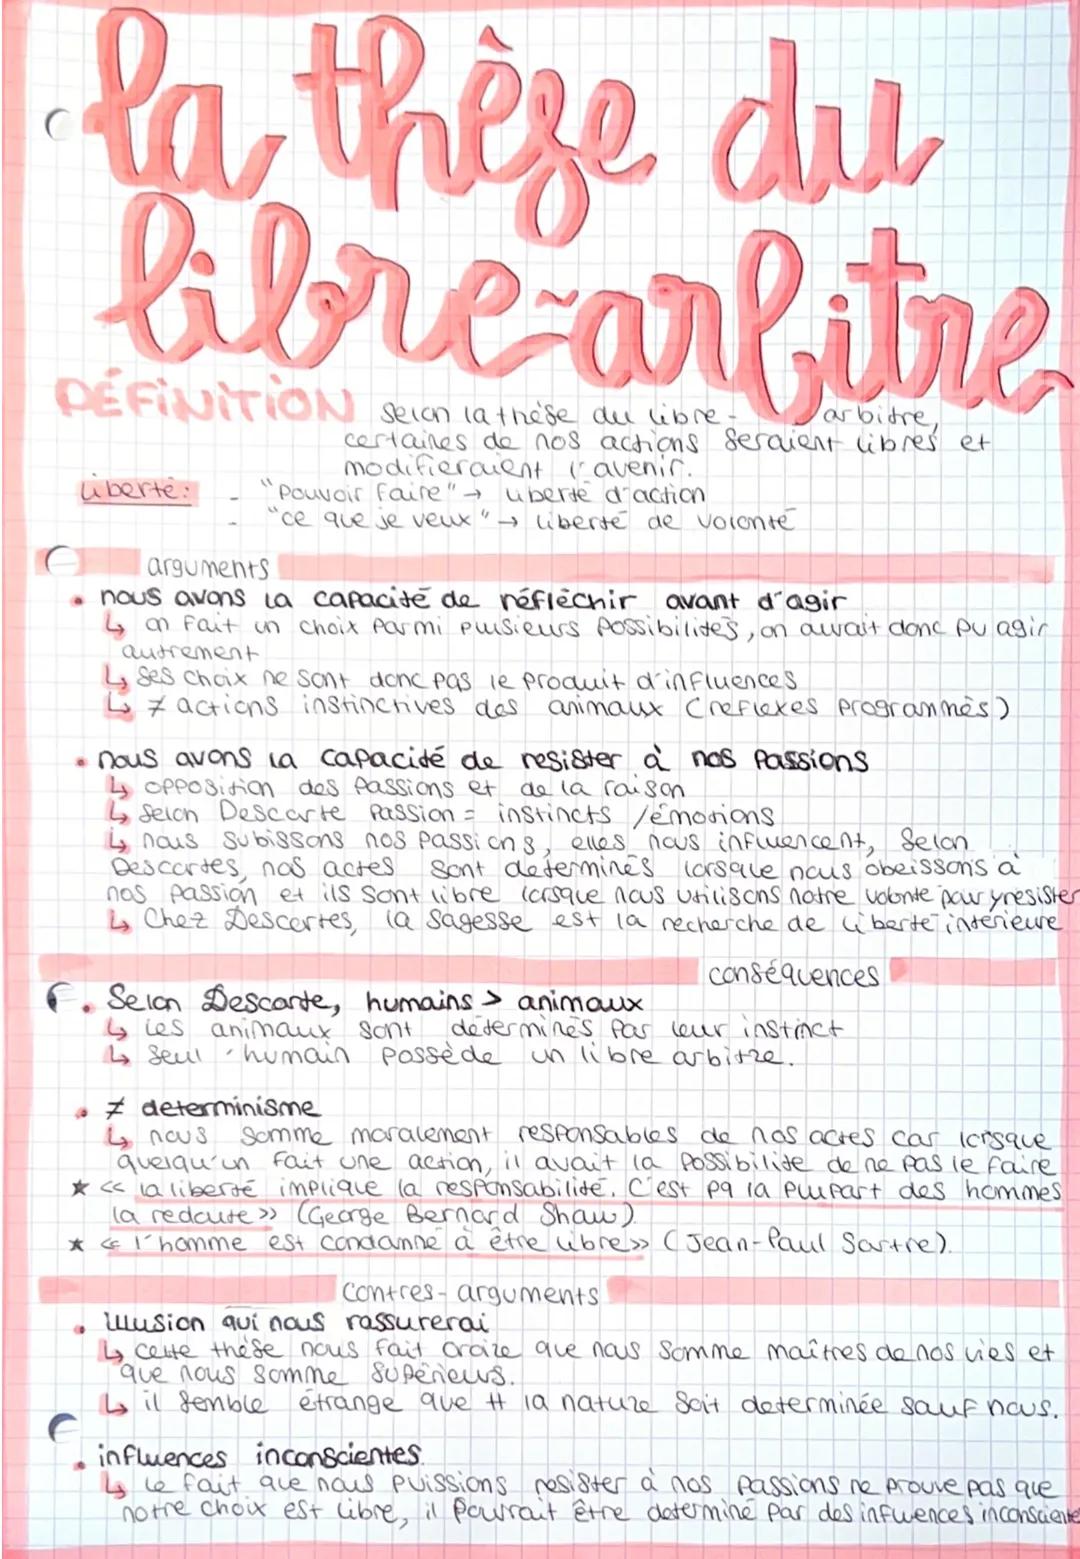 la thèse du
libre-arbitre
DÉFINITION selon la thèse du libre-arbitre,
certaines de nos actions seraient libres et
modifieraient l'avenir.
liberté: - "pouvoir faire" → liberté d'action
- "ce que je veux" → liberté de volonté
arguments
• nous avons la capacité de réfléchir avant d'agir
↳ on fait un choix parmi plusieurs possibilités, on aurait donc pu agir
autrement
↳ ses choix ne sont donc pas le produit d'influences
↳ ≠ actions instinctives des animaux (reflexes programmés)
• nous avons la capacité de resister à nos passions
↳ opposition des passions et de la raison
↳ selon Descarte passion = instincts / émotions
↳ nous subissons nos passions, elles nous influencent, selon
Descartes, nos actes sont déterminés lorsque nous obeissons à
nos passion et ils sont libre lorsque nous utilisons notre volonté pour y resister
↳ Chez Descartes, la sagesse est la recherche de liberté intérieure
conséquences
• Selon Descarte, humains > animaux
↳ les animaux sont déterminés par leur instinct
↳ seul humain possède un libre arbitre.
• ≠ determinisme
↳ nous somme moralement responsables de nos actes car lorsque
quelqu'un fait une action, il avait la possibilité de ne pas le faire
★ << la liberté implique la responsabilité. C'est pq la plupart des hommes
la redoute >> (George Bernard Shaw).
★ << l'homme est condanné à être libre >> (Jean-Paul Sartre).
contres-arguments
• illusion qui nous rassurerai
↳ cette thèse nous fait croire que nous somme maîtres de nos vies et
que nous somme supérieurs.
↳ il semble étrange que tt la nature soit determinée sauf nous.
• influences inconscientes.
↳ le fait que nous puissions resister à nos passions ne prouve pas que
notre choix est libre, il pourrait être determiné par des influences inconsciente